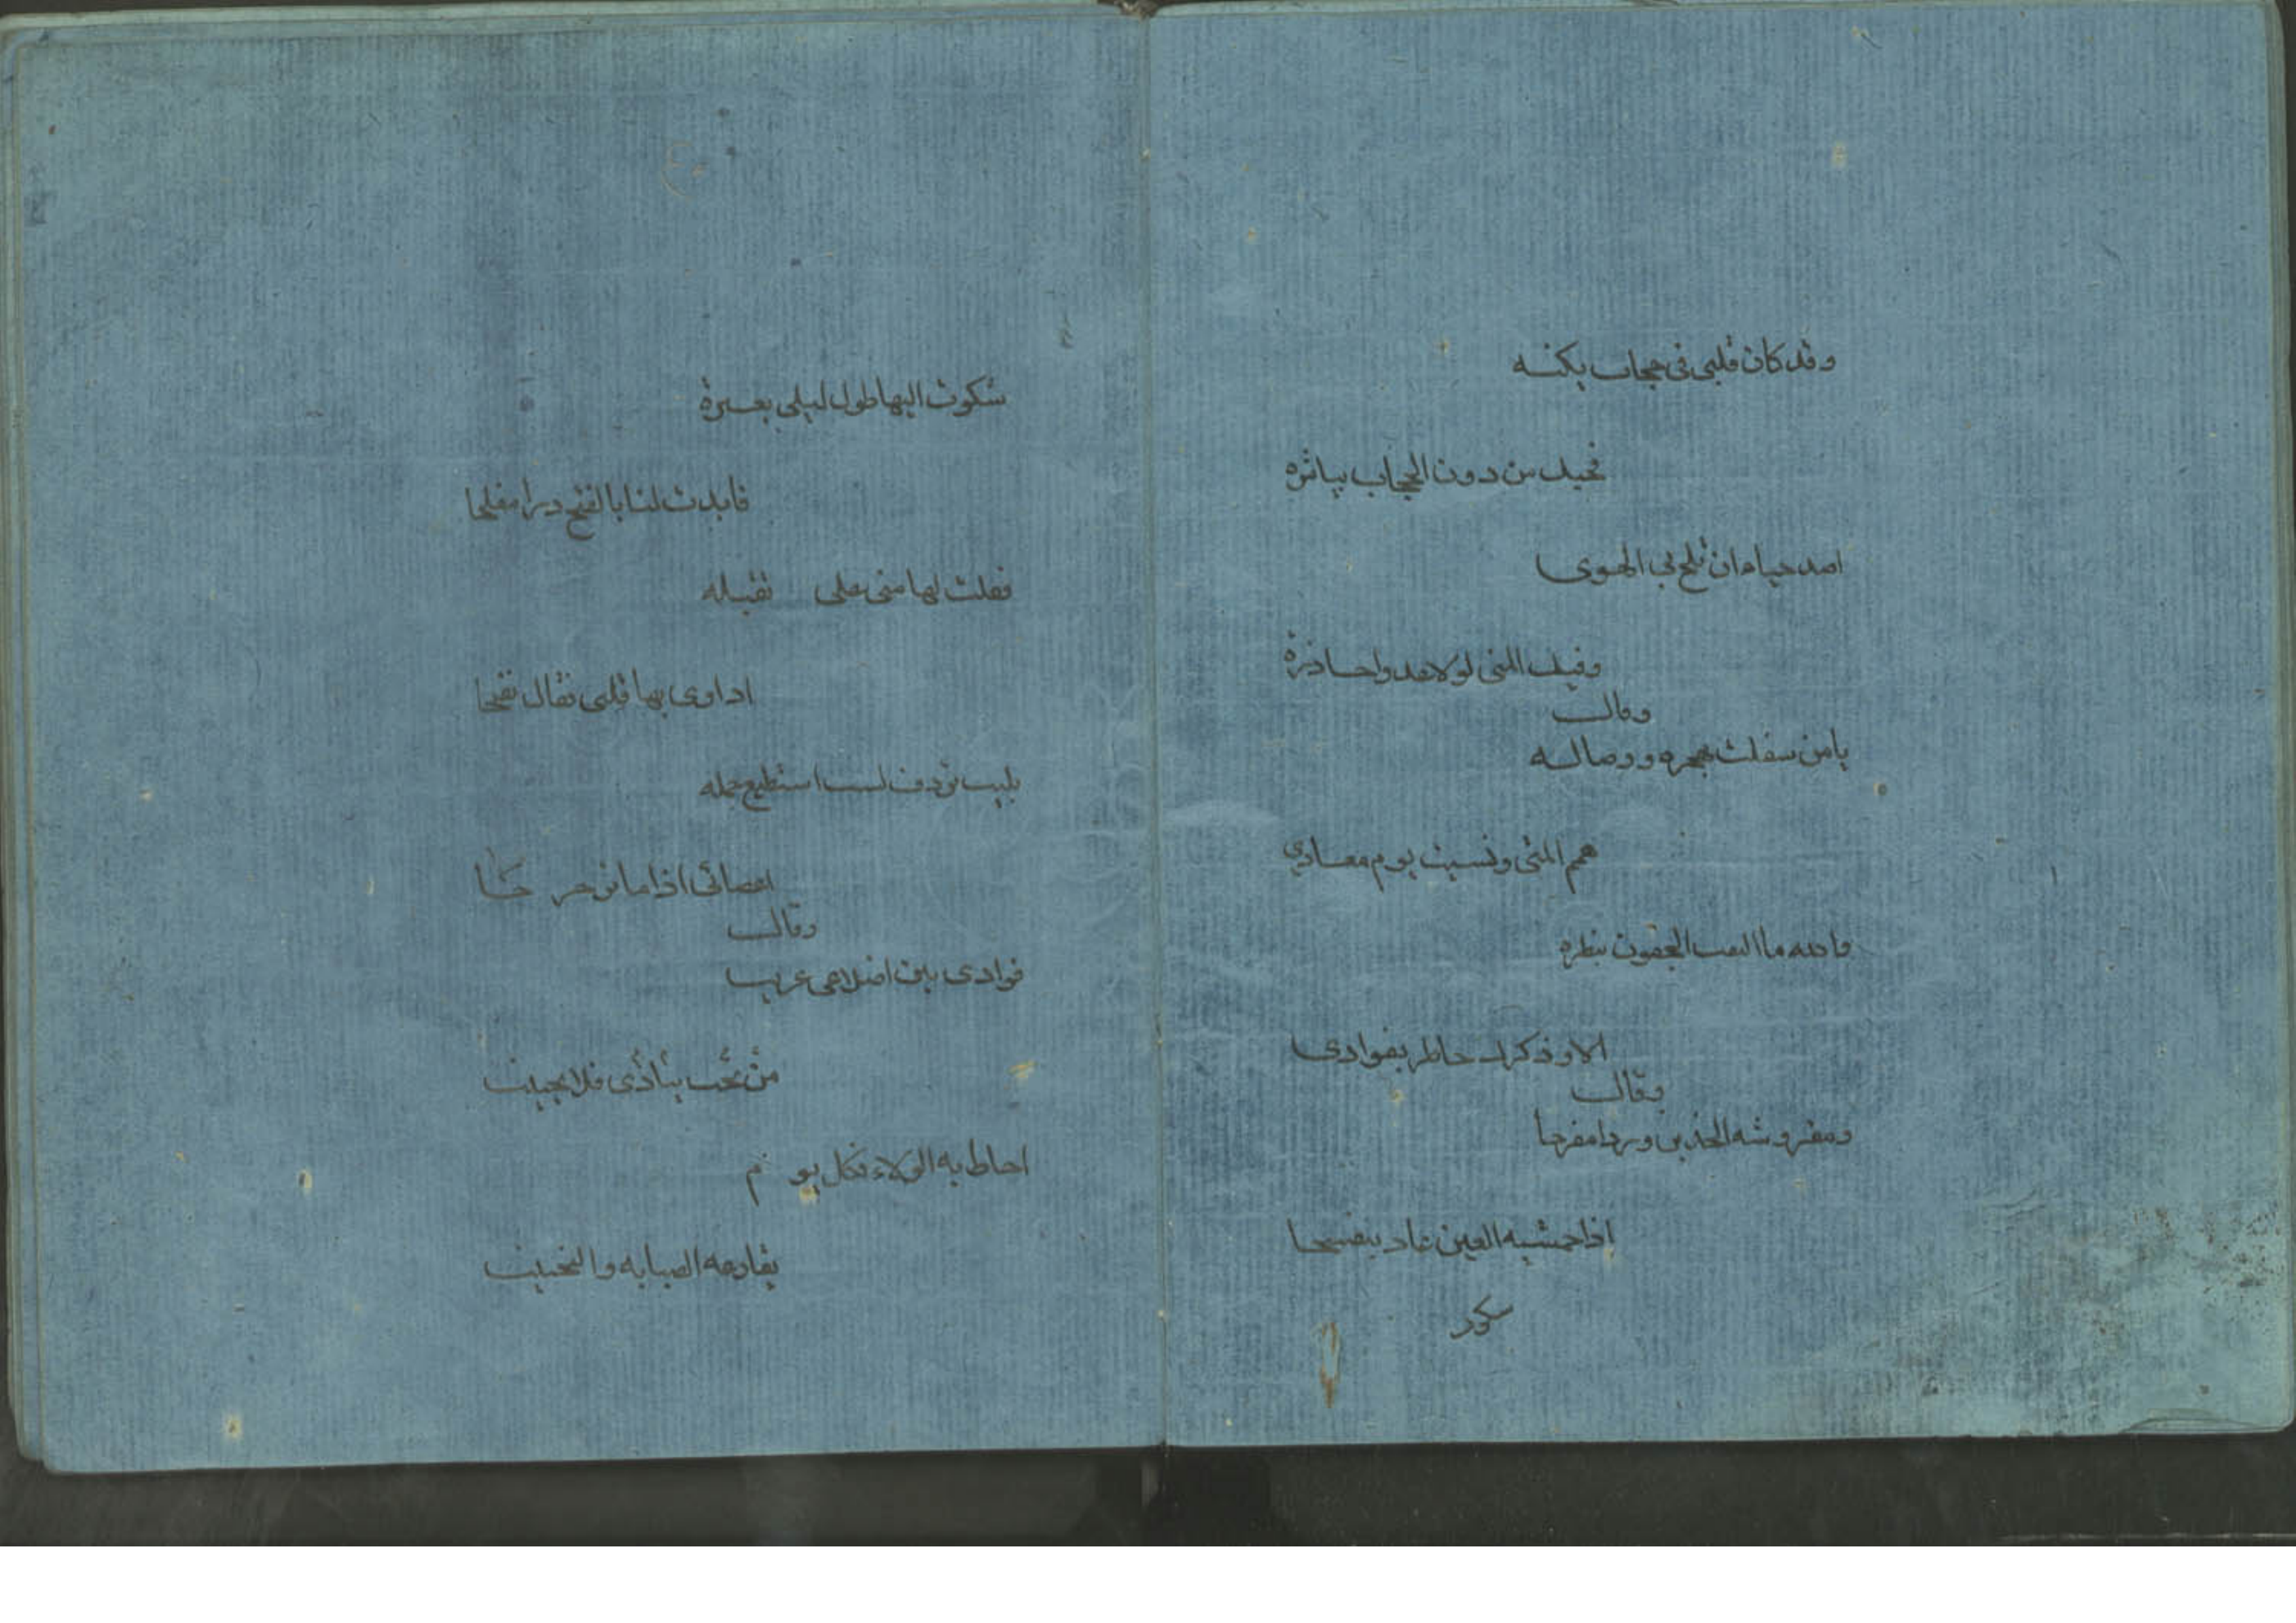 وقد كان قلبي في حجاب يكنه
فحبك من دون الحجاب يباشره
اصد حياء ان يلج بي الهوى
وفيك المنى لولا عدو احاذره
وقال
يامن شغلت بهجره ووصاله
همم المنى ونسيت يوم معادي
والله ما التقت الجفون بنظره
الا وذكرك خاطر بفوادى
وقال
ومغروشه الخدين وردا مضرجا
اذا جمشته العين عاد بنفسجا
شكوت
شكوت اليها طول ليلي بعبرة
فابدت لنا بالغنج درا مفلجا
فقلت لها منى على بقبله
اداوى بها قلبي فقال تغنجا
بليت بردف لست استطيع حمله
اذا ما ترجرجا
وقال
فوادى بين اضلاعى غريب
من يحب فلا يجيب
احاط به البلاء فكل يوم
يقارعه الصبابه والنحيب